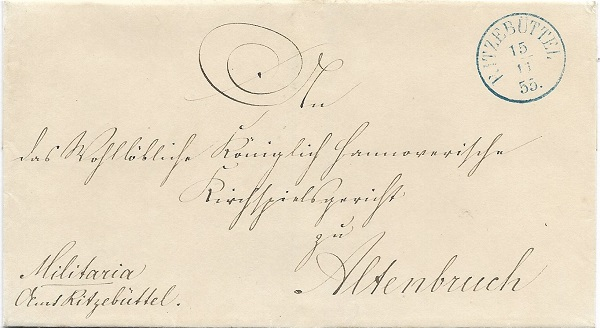 RITZEBÜTTEL
15
11
55.
An
das Wohllöbliche Königlich Hannoversche
Kirchspielsgericht
zu
Altenbruch
Militaria
Amt Ritzebüttel.